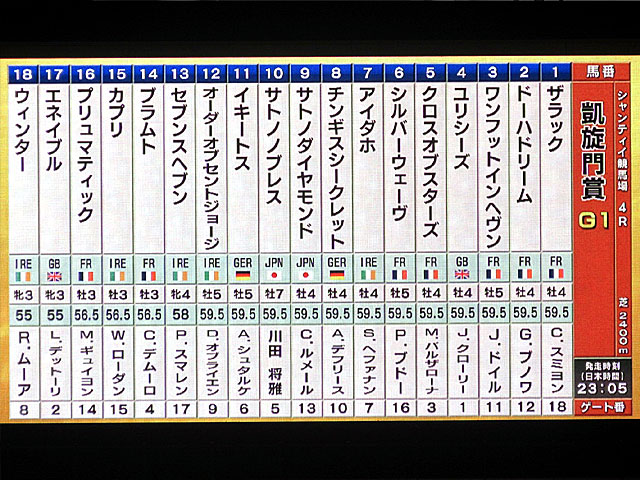 馬番
シャンティイ競馬場 4R
凱旋門賞
G1
芝2400m
発走時刻
(日本時間)
23:05
ゲート番
1 ザラック FR 牡4 59.5 C.スミヨン 18
2 ドーハドリーム FR 牡4 59.5 G.ブノワ 12
3 ワンフットインヘヴン FR 牡5 59.5 J.ドイル 11
4 ユリシーズ GB 牡4 59.5 J.クローリー 1
5 クロスオブスターズ FR 牡4 59.5 M.バルザローナ 3
6 シルバーウェーヴ FR 牡5 59.5 P.ブドー 16
7 アイダホ IRE 牡4 59.5 S.ヘファナン 7
8 チンギスシークレット GER 牡4 59.5 A.デフリース 10
9 サトノダイヤモンド JPN 牡4 59.5 C.ルメール 13
10 サトノノブレス JPN 牡7 59.5 川田 将雅 5
11 イキートス GER 牡5 59.5 A.シュタルケ 6
12 オーダーオブセントジョージ IRE 牡5 59.5 D.オブライエン 9
13 セブンスヘブン IRE 牝4 58 P.スマレン 17
14 ブラムト FR 牡3 56.5 C.デムーロ 4
15 カプリ IRE 牡3 56.5 W.ローダン 15
16 プリュマティック FR 牡3 56.5 M.ギュイヨン 14
17 エネイブル GB 牝3 55 L.デットーリ 2
18 ウィンター IRE 牝3 55 R.ムーア 8